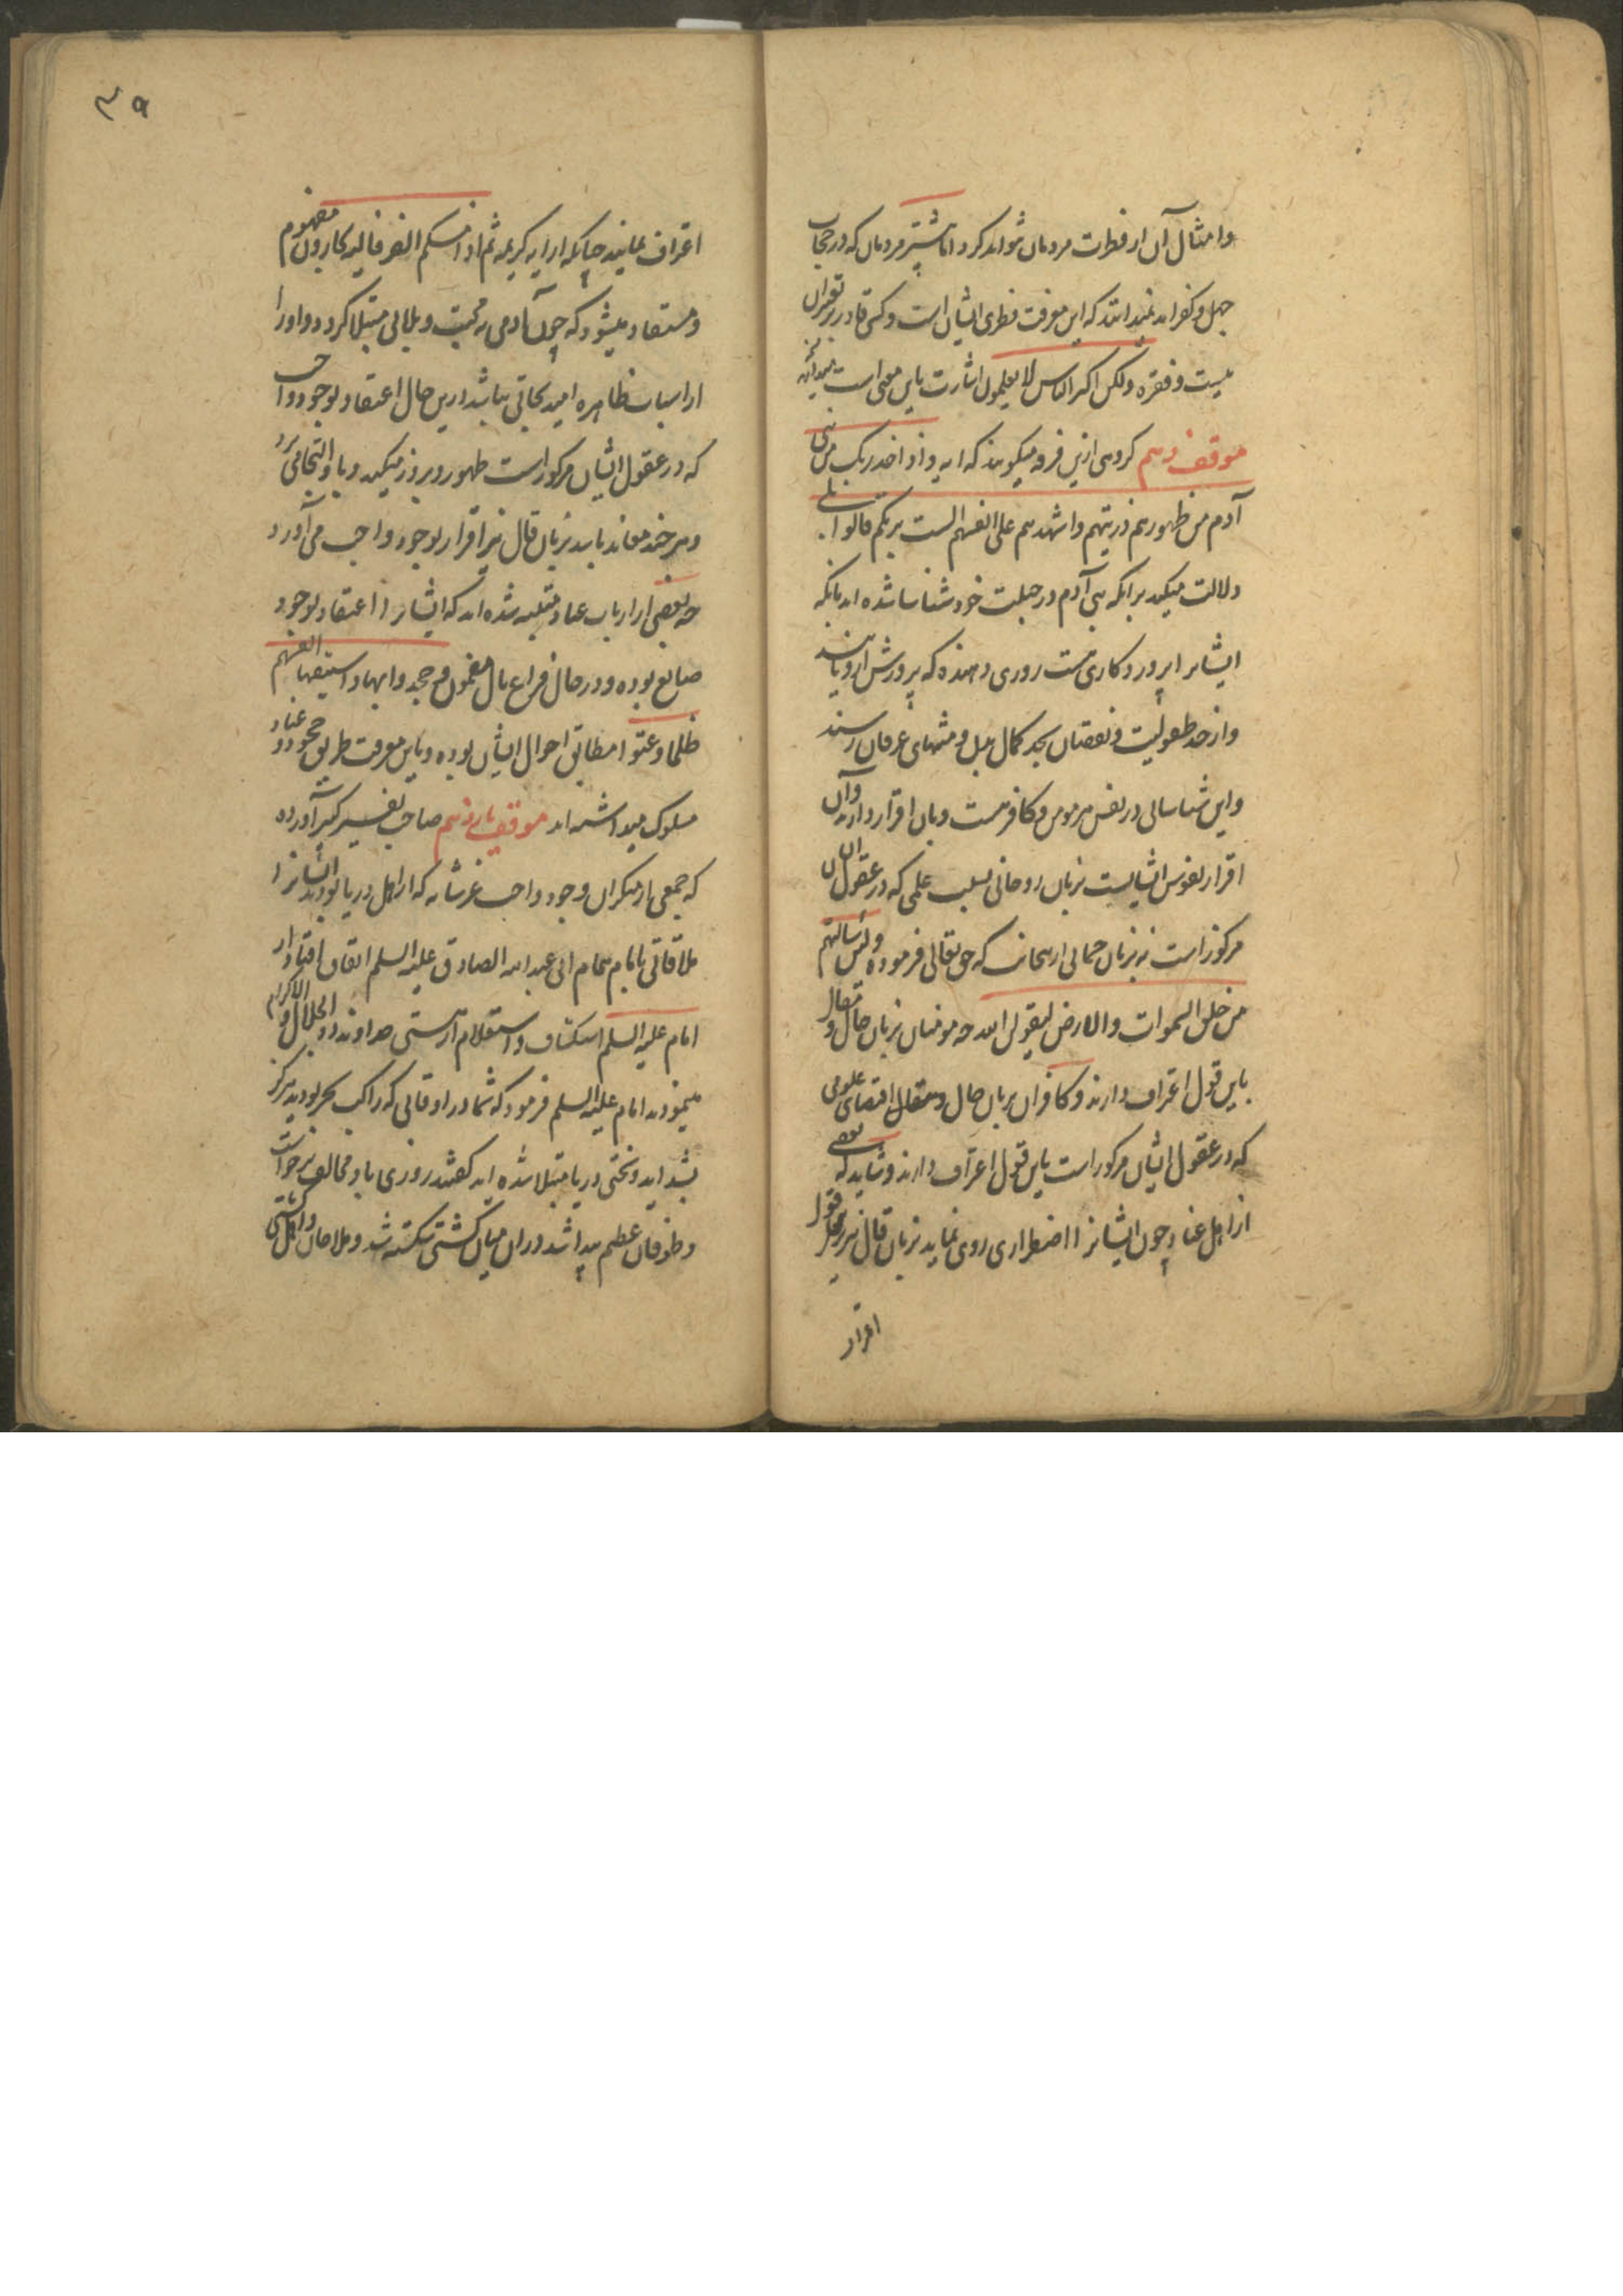 وامثال آن از فطرات مردمان تواند کرد اما بیشتر مردمان که در حجاب
جهل و کفراند نمیدانند که این معرفت فطری ایشان است و کسی قادر بر تغیر آن
نیست و فقره ولکن اکثر الناس لا یعلمون اشارت باین معنی است
موقف دهم کروهی ازین فرقه میکویند که ایه و اذ اخذ ربک من بنی
آدم من ظهورهم ذریتهم و اشهدهم علی انفسهم الست بربکم قالوا بلی
دلالت میکند برانکه بنی آدم در جبلت خود شناسا شده اند بانکه
ایشانرا پروردکاری هست روزی دهنده که پرورش ازو یابند
و از حد طفولیت و نقصان بحد کمال و منتهای عرفان رسند
و این شناسائی در نفس هر مومن و کافر هست و بان اقرار دارند و آن
اقرار نفوس ایشانست بزبان روحانی بسبب علمی که در عقول ایشان
مرکوز است نه بزبان جسمانی ازینجاست که حق تعالی فرموده ولئن سالتهم
من خلق السموات والارض لیقولن الله چه مومنان بزبان حال و مقال
باین قول اعتراف دارند و کافران بزبان حال و مقال اقتضای علومی
که در عقول ایشان مرکوز است باین قول اعتراف دارند و شاید که بعضی
از اهل عناد چون ایشانرا اضطراری روی نماید بزبان قال نیز
اقرار
۳۹
اعتراف نمایند چنانکه از ایه کریمه ثم اذا مسکم الضر فالیه تجارون مفهوم
و مستفاد میشود که چون آدمی به محنت و بلائی مبتلا کردد و او را
از اسباب ظاهره امید نجاتی نباشد درین حال اعتقاد بوجود واجب
که در عقول ایشان مرکوز است ظهور و بروز میکند و باو التجا می برد
و هر چند معاند باشد بزبان قال نیز اقرار بوجود واجب می آورد
چه بعضی از ارباب عناد متنبه شده اند که ایشانرا اعتقاد بوجود
صانع بوده و در حال فراغ بال مضمون و جحدوا بها و استیقنتها انفسهم
ظلما و علوا مطابق احوال ایشان بوده و باین معرفت طریق جحود و عناد
مسلوک میداشته اند موقف یازدهم صاحب تفسیر کبیر آورده
که جمعی از منکران وجود واجب عز شانه که از اهل دریا بودند ایشانرا
ملاقاتی با امام همام ابی عبد الله الصادق علیه السلم اتفاق افتاد از
امام علیه السلم استکشاف و استعلام از هستی خداوند ذو الجلال و الاکرام
مینمودند امام علیه السلم فرمود که شما در اوقاتی که راکب بحر بودید هرکز
بشداید و سختی دریا مبتلا شده اید کفتند روزی باد مخالف برخواست
و طوفان عظیم پیدا شد دران میان کشتی شکسته شد و ملاحان و اهل کشتی